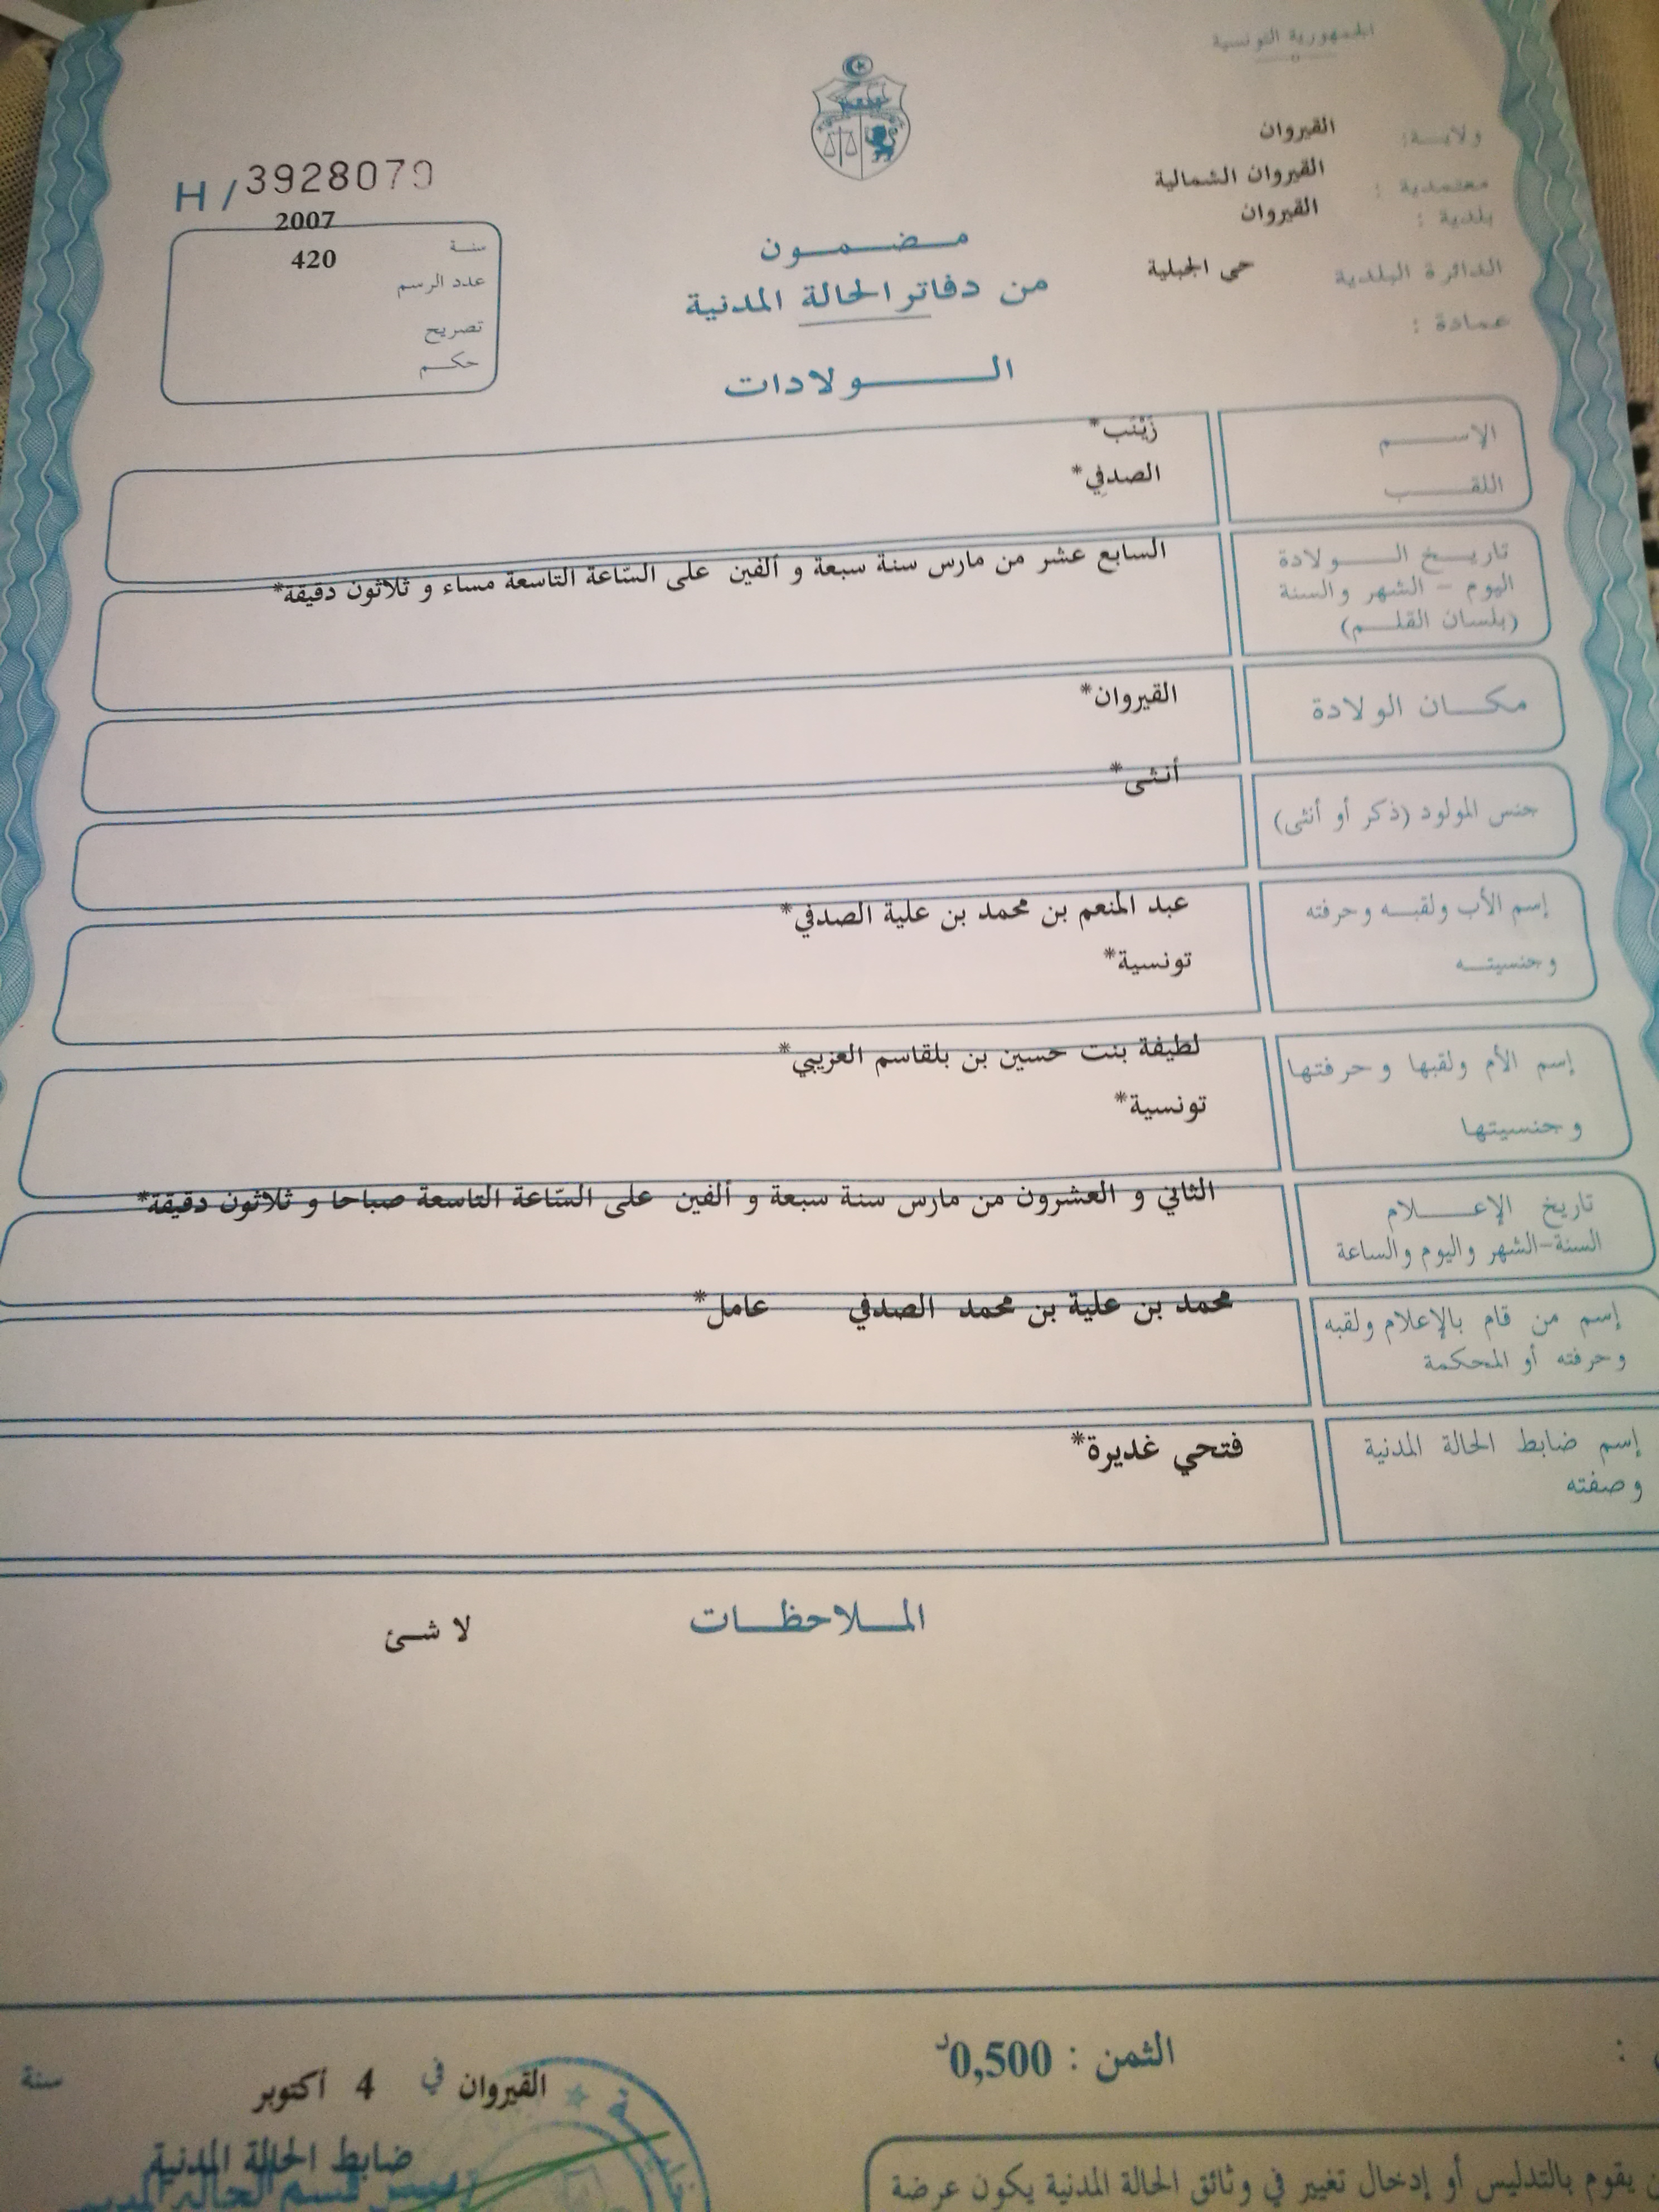 الجمهورية التونسية
ولاية: القيروان
معتمدية : القيروان الشمالية
بلدية : القيروان
الدائرة البلدية حى الجبلية
عمادة :
H / 3928079
2007
سنة
420
عدد الرسم
تصريح
حكم
مضمون
من دفاتر الحالة المدنية
الولادات
الاسم زَيْنَب*
اللقب الصدفِي*
تاريخ الولادة السابع عشر من مارس سنة سبعة و ألفين على السّاعة التاسعة مساء و ثلاثون دقيقة*
اليوم - الشهر والسنة
(بلسان القلم)
مكان الولادة القيروان*
جنس المولود (ذكر أو أنثى) أنثى*
إسم الأب ولقبه وحرفته عبد المنعم بن محمد بن علية الصدفي*
وجنسيته تونسية*
إسم الأم ولقبها وحرفتها لطيفة بنت حسين بن بلقاسم العزيبي*
وجنسيتها تونسية*
تاريخ الإعلام الثاني و العشرون من مارس سنة سبعة و ألفين على السّاعة التاسعة صباحا و ثلاثون دقيقة*
السنة-الشهر واليوم والساعة
إسم من قام بالإعلام ولقبه محمد بن علية بن محمد الصدفي عامل*
وحرفته أو المحكمة
إسم ضابط الحالة المدنية فتحي غديرة*
وصفته
الملاحظات
لا شئ
الثمن : 0,500د
القيروان في 4 أكتوبر سنة
ضابط الحالة المدنية
يقوم بالتدليس أو إدخال تغيير في وثائق الحالة المدنية يكون عرضة